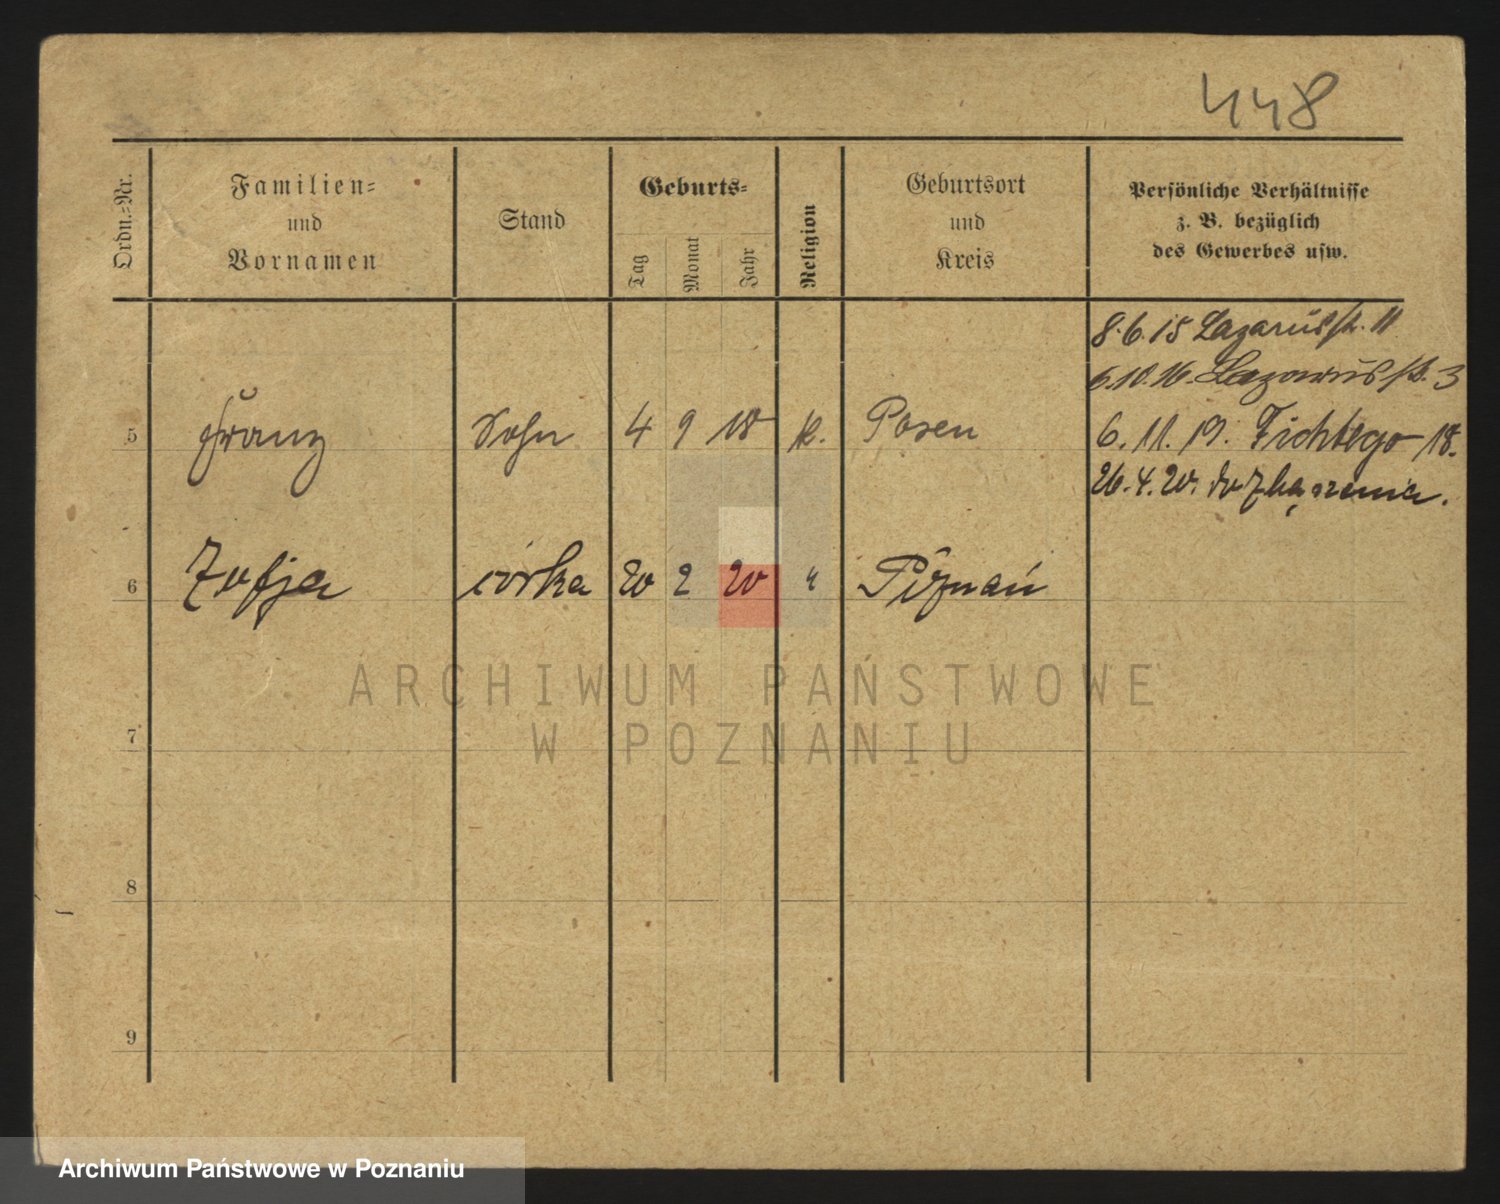 448
Ordn.=Nr.
Familien=
und
Vornamen
Stand
Geburts=
Tag
Monat
Jahr
Religion
Geburtsort
und
Kreis
Persönliche Verhältnisse
z. B. bezüglich
des Gewerbes usw.
8.6.15 Lazarusstr. 11
6.10.16. Lazarusstr. 3
5 Franz Sohn 4 9 18 k. Posen 6.11.19. Fichtego 18.
26.4.20. do Zbąszenia.
6 Zofja córka 20 2 20 " Poznań
7
8
9
ARCHIWUM PAŃSTWOWE
W POZNANIU
Archiwum Państwowe w Poznaniu